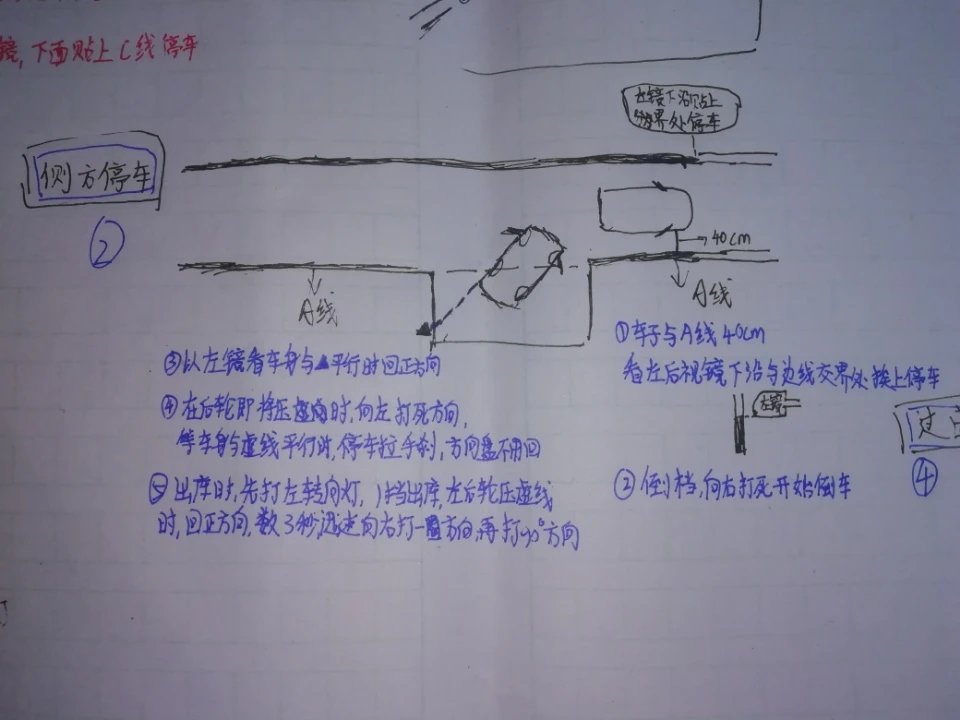 镜,下面贴上C线停车
左镜下沿贴上
交界处停车
侧方停车
②
40cm
A线
A线
①车子与A线40cm
看左后视镜下沿与边线交界处挨上停车
左镜
②倒档,向右打死开始倒车
③以左镜看车身与▲平行时回正方向
④在后轮即将压虚线时,向左打死方向,
等车身与虚线平行时,停车拉手刹,方向盘不用回
⑤出库时,先打左转向灯,1挡出库,左后轮压虚线
时,回正方向,数3秒,迅速向右打一圈方向,再打90°方向
过
④